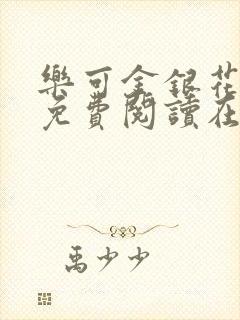 樂可金銀花
免費閱讀在
禹少少